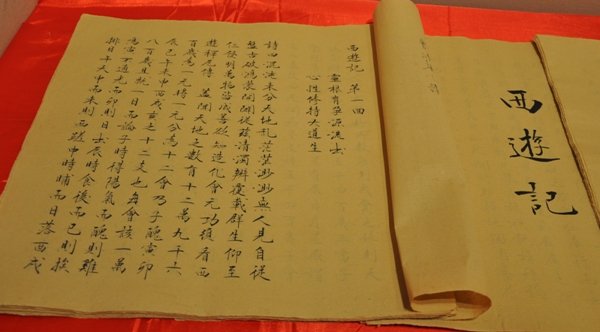 西遊記
西遊記 第一回
靈根育孕源流出
心性修持大道生
詩曰混沌未分天地亂茫茫渺渺無人見自從
盤古破鴻濛開闢從茲清濁辨覆載群生仰至
仁發明萬物皆成善欲知造化會元功須看西
遊釋厄傳 蓋聞天地之數有十二萬九千六
百歲為一元將一元分為十二會乃子醜寅卯
辰巳午未申酉戌亥之十二支也每會該一萬
八百歲且就一日而論子時得陽氣而醜則雞
鳴寅不通光而卯則日出辰時食後而巳則挨
排日午天中而未則西蹉申時晡而日落酉戌